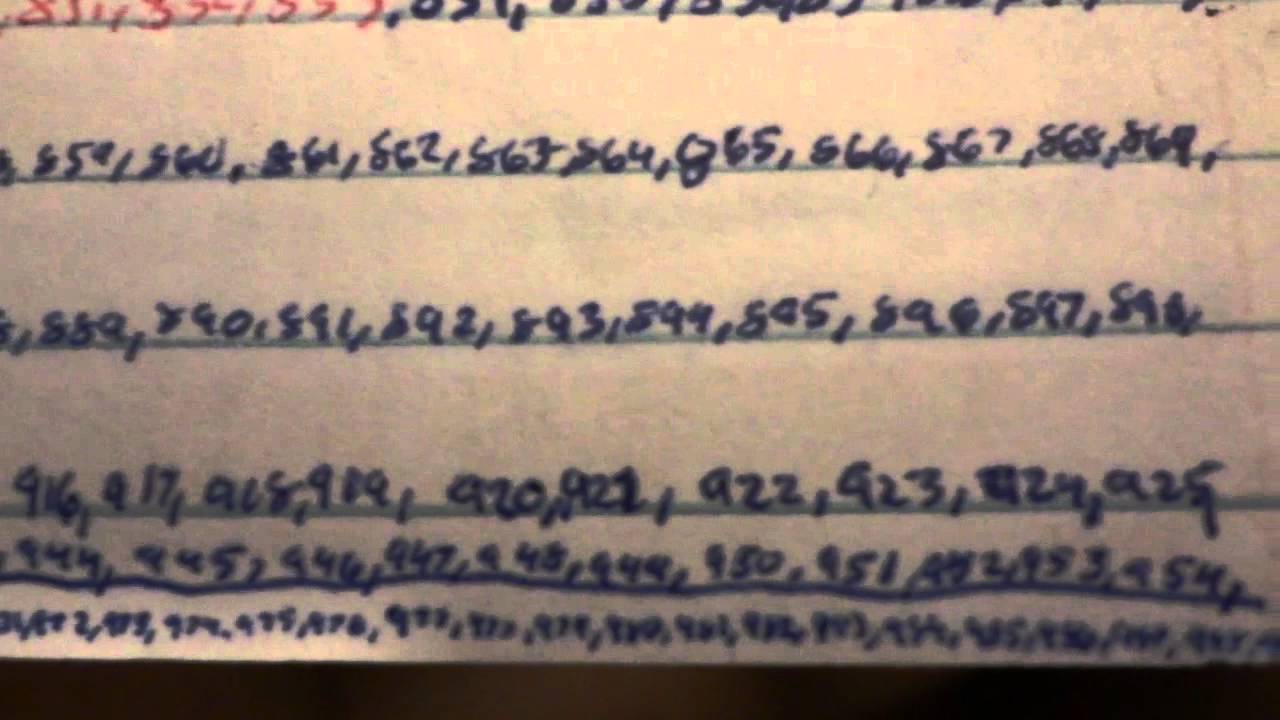 859, 860, 861, 862, 863, 864, 865, 866, 867, 868, 869,
889, 890, 891, 892, 893, 894, 895, 896, 897, 898,
916, 917, 918, 919, 920, 921, 922, 923, 924, 925
944, 945, 946, 947, 948, 949, 950, 951, 952, 953, 954,
972, 973, 974, 975, 976, 977, 978, 979, 980, 981, 982, 983, 984, 985, 986,